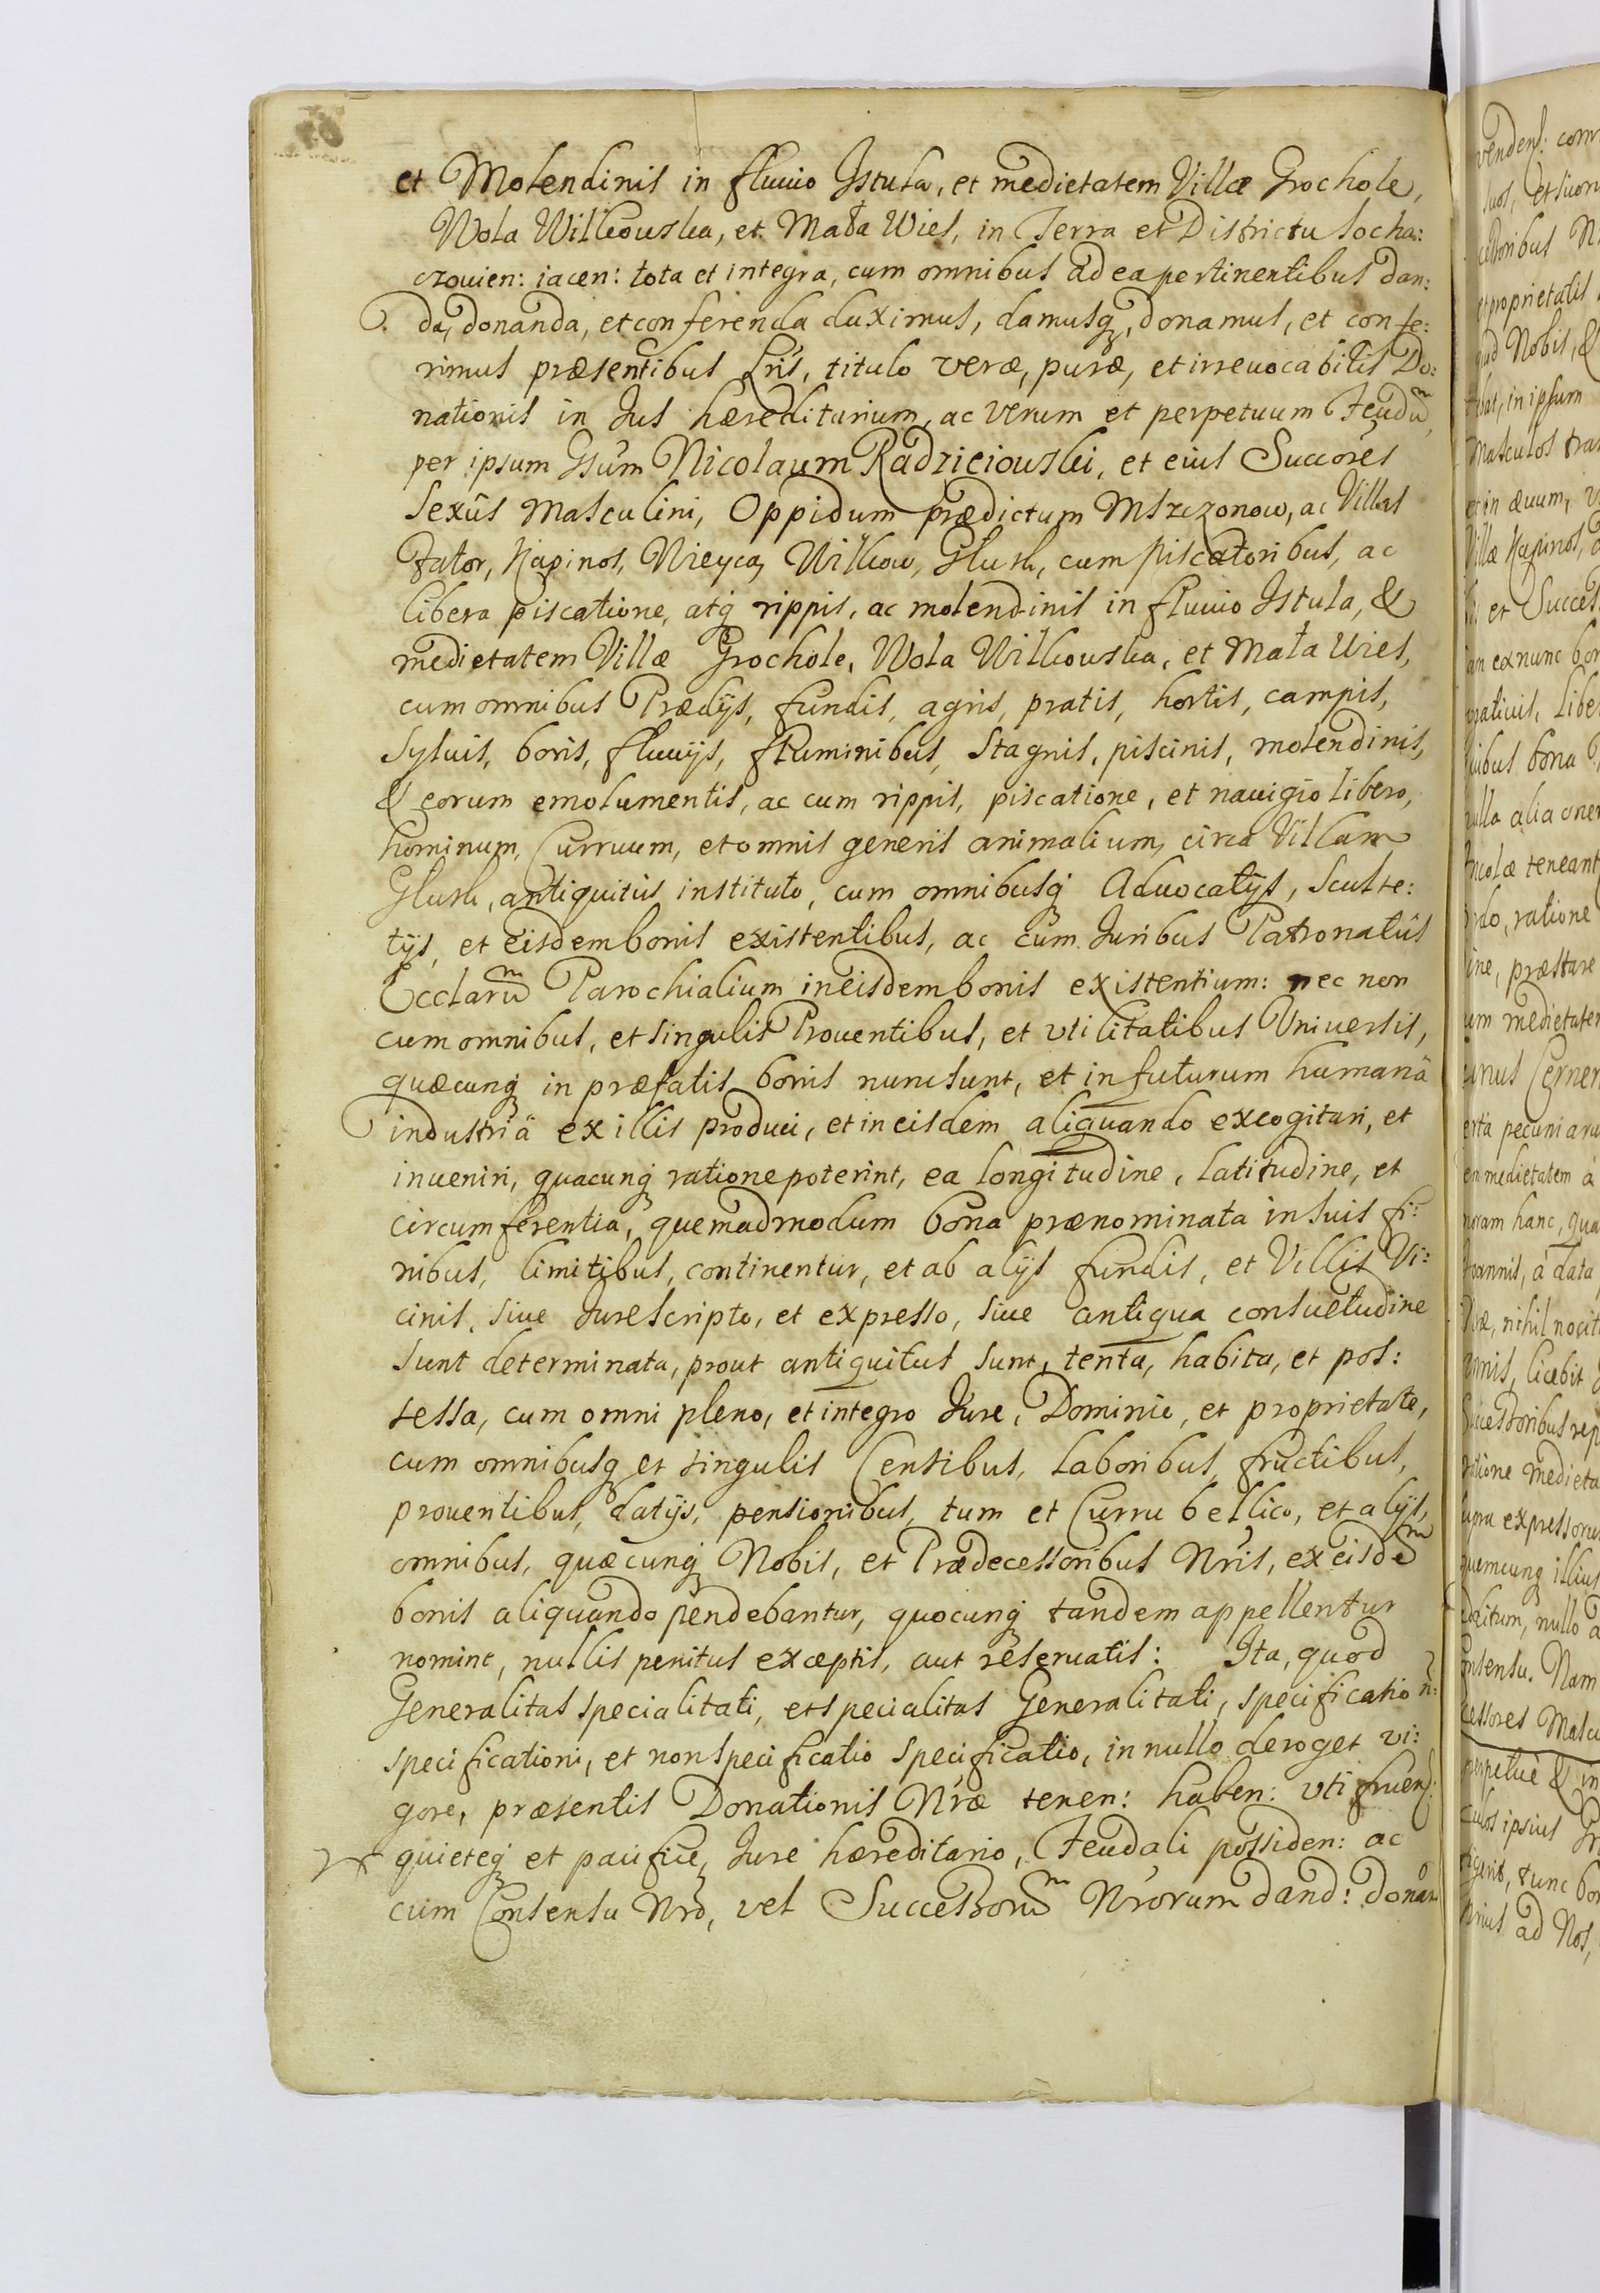 et Molendinis in fluuio Istula, et medietatem Villæ Grochole,
Wola Wilkouska, et Mała Wies, in Terra et Districtu Socha:
czouien: iacen: tota et integra, cum omnibus ad ea pertinentibus dan:
da, donanda, et conferenda duximus, damusq, donamus, et confe:
rimus præsentibus Lris, titulo veræ, puræ, et irreuocabilis Do:
nationis in Jus hæreditarium, ac verum et perpetuum Feudū,
per ipsum Gsum Nicolaum Radzieiouski, et eius Succores
sexûs Masculini, Oppidum prædictum Mszczonow, ac Villas
Zator, Kapinos, Nieyca, Wilkow, Glusk, cum piscatoribus, ac
libera piscatione, atq rippis, ac molendinis in fluuio Istula, &
medietatem Villæ Grochole, Wola Wilkouska, et Mała Wies,
cum omnibus Prædijs, fundis, agris, pratis, hortis, campis,
syluis, boris, fluuijs, fluminibus, stagnis, piscinis, molendinis,
& eorum emolumentis, ac cum rippis, piscatione, et nauigio libero,
hominum, Curruum, et omnis generis animalium, circa Villam
Glusk, antiquitùs instituto, cum omnibusq Aduocatijs, Sculte:
tijs, et eisdem bonis existentibus, ac cum Juribus Patronatûs
Ecclarū Parochialium in eisdem bonis existentium: nec non
cum omnibus, et singulis Prouentibus, et vtilitatibus Vniuersis,
quæcunq in præfatis bonis nunc sunt, et in futurum humanâ
industriâ ex illis produci, et in eisdem aliquando excogitari, et
inueniri, quacunq ratione poterint, ea longitudine, latitudine, et
circumferentia, quemadmodum bona prænominata in suis fi:
nibus, limitibus, continentur, et ab alijs fundis, et Villis Vi:
cinis, siue Jure scripto, et expresso, siue antiqua consuetudine
sunt determinata, prout antiquitus sunt, tenta, habita, et pos:
sessa, cum omni pleno, et integro Jure, Dominio, et proprietate,
cum omnibusq et singulis Censibus, laboribus, fructibus,
prouentibus, datijs, pensionibus, tum et Curru bellico, et alijs,
omnibus, quæcunq Nobis, et Prædecessoribus Nris, ex eisdē
bonis aliquando pendebantur, quocunq tandem appellentur
nomine, nullis penitus exceptis, aut reseruatis: Ita, quod
Generalitas specialitati, et specialitas Generalitati, specificatio ñ:
specificationi, et non specificatio specificatio, in nullo deroget vi:
gore, præsentis Donationis Nræ tenen: haben: vtifruen:
quieteq et pacifice, Jure hæreditario, Feudali possiden: ac
cum Consensu Nro, vel Successorū Nrorum dand: Donan